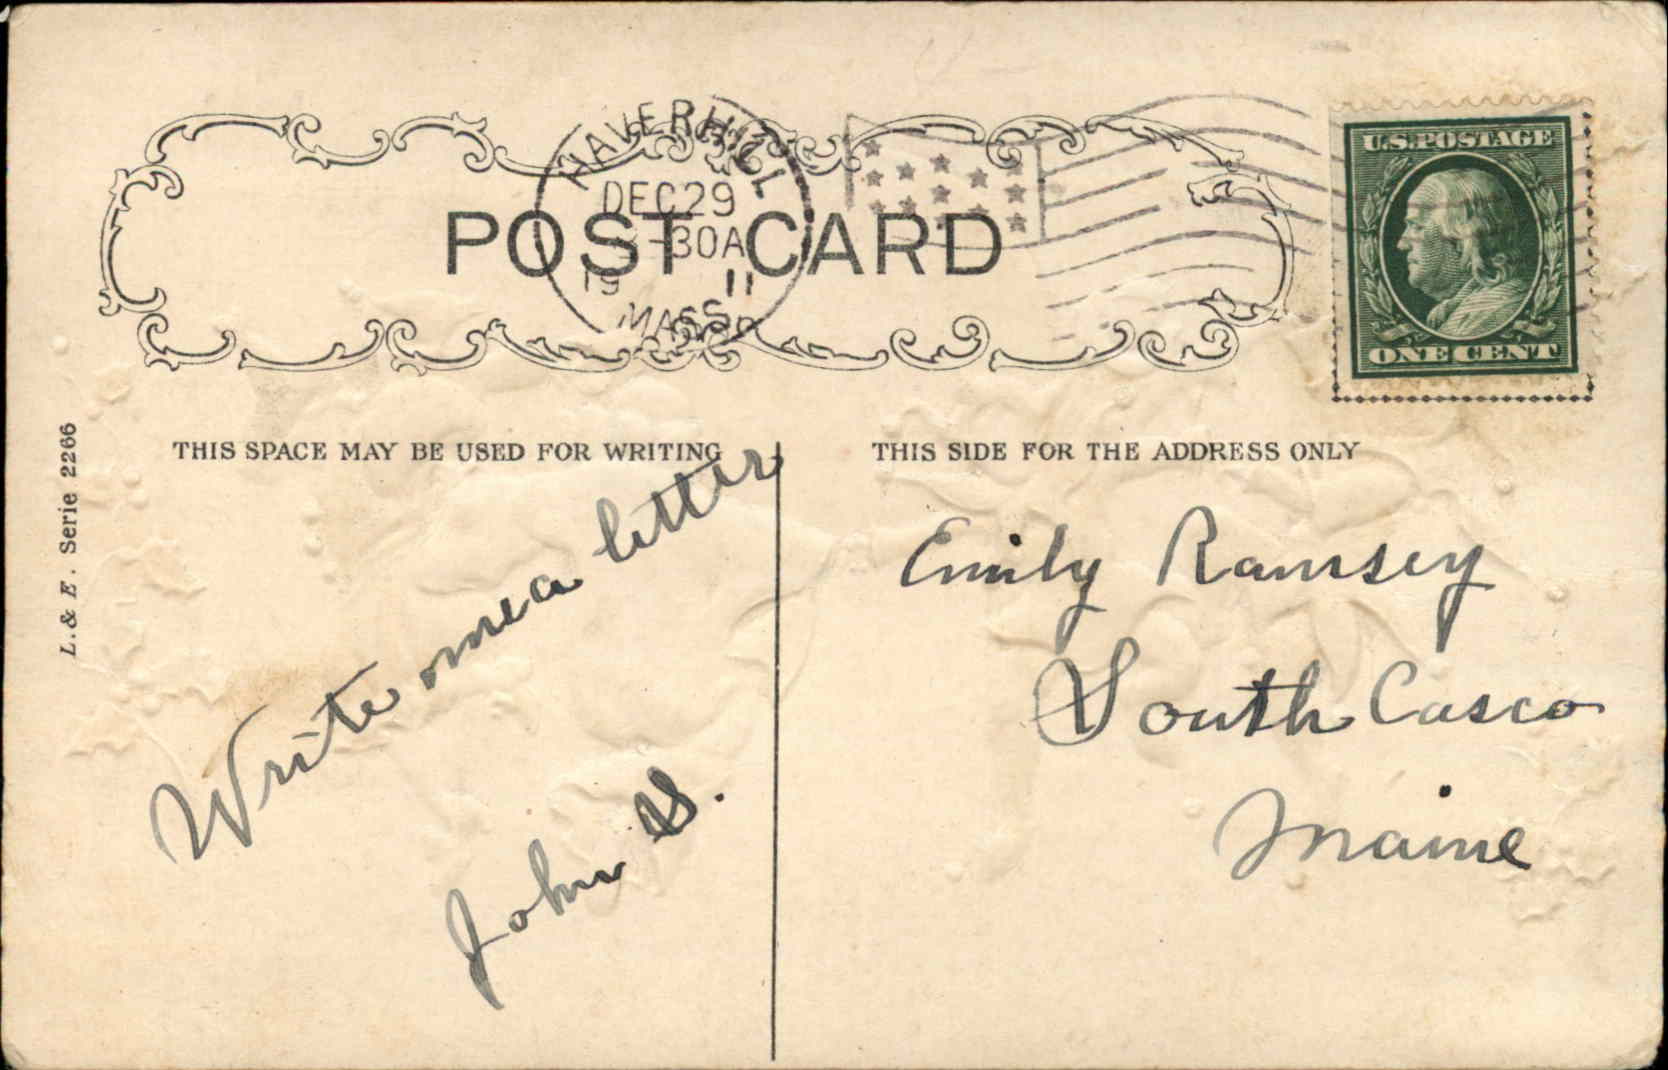 HAVERHILL
DEC 29
-30A
19 11
MASS.
POST CARD
U.S. POSTAGE
ONE CENT
THIS SPACE MAY BE USED FOR WRITING
THIS SIDE FOR THE ADDRESS ONLY
L. & E. Serie 2266
Write me a letter
John S.
Emily Ramsey
South Casco
Maine